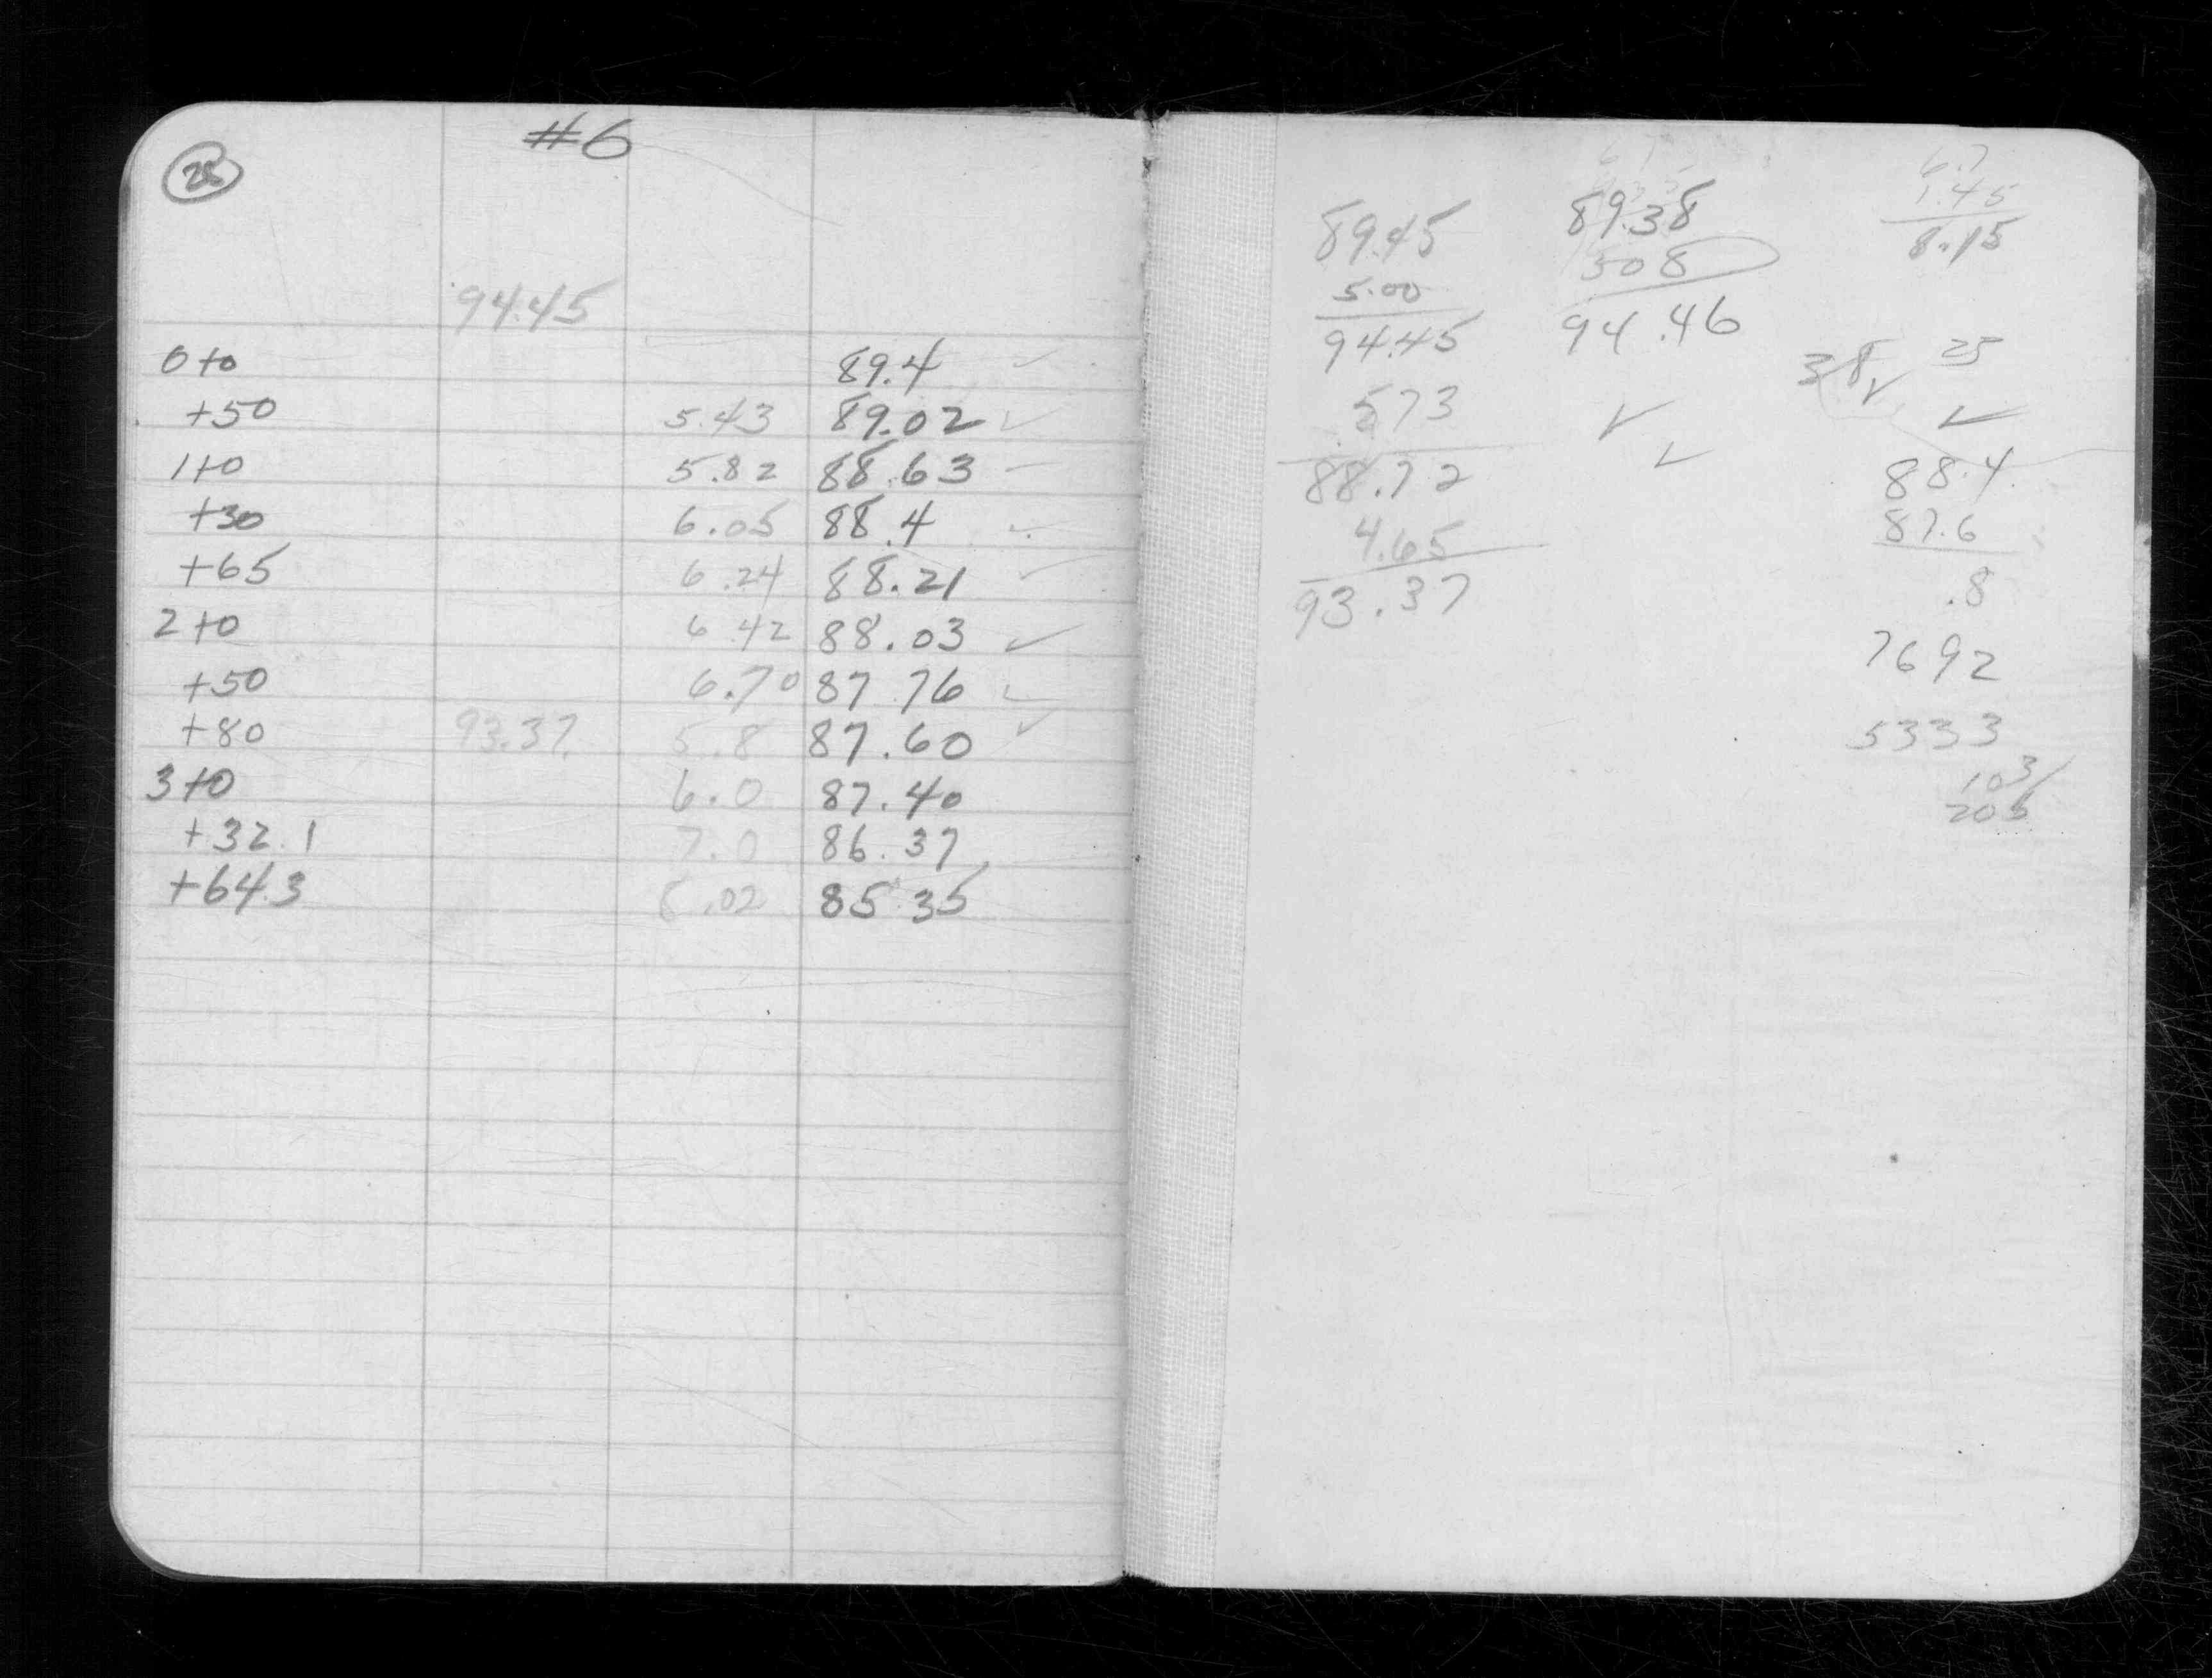 #6
94.45
0+0 89.4
+50 5.43 89.02 ✓
1+0 5.82 88.63
+30 6.05 88.4 ✓
+65 6.24 88.21 ✓
2+0 6.42 88.03 ✓
+50 6.70 87.76 ✓
+80 93.37 5.8 87.60 ✓
3+0 6.0 87.40
+32.1 7.0 86.37
+64.3 8.02 85.35
89.45
5.00
94.45
573
88.72
4.65
93.37
89.38
508
94.46
✓
✓
6.7
1.45
8.15
38 ✓ 25
✓
88.4
87.6
.8
7692
5333
103
205